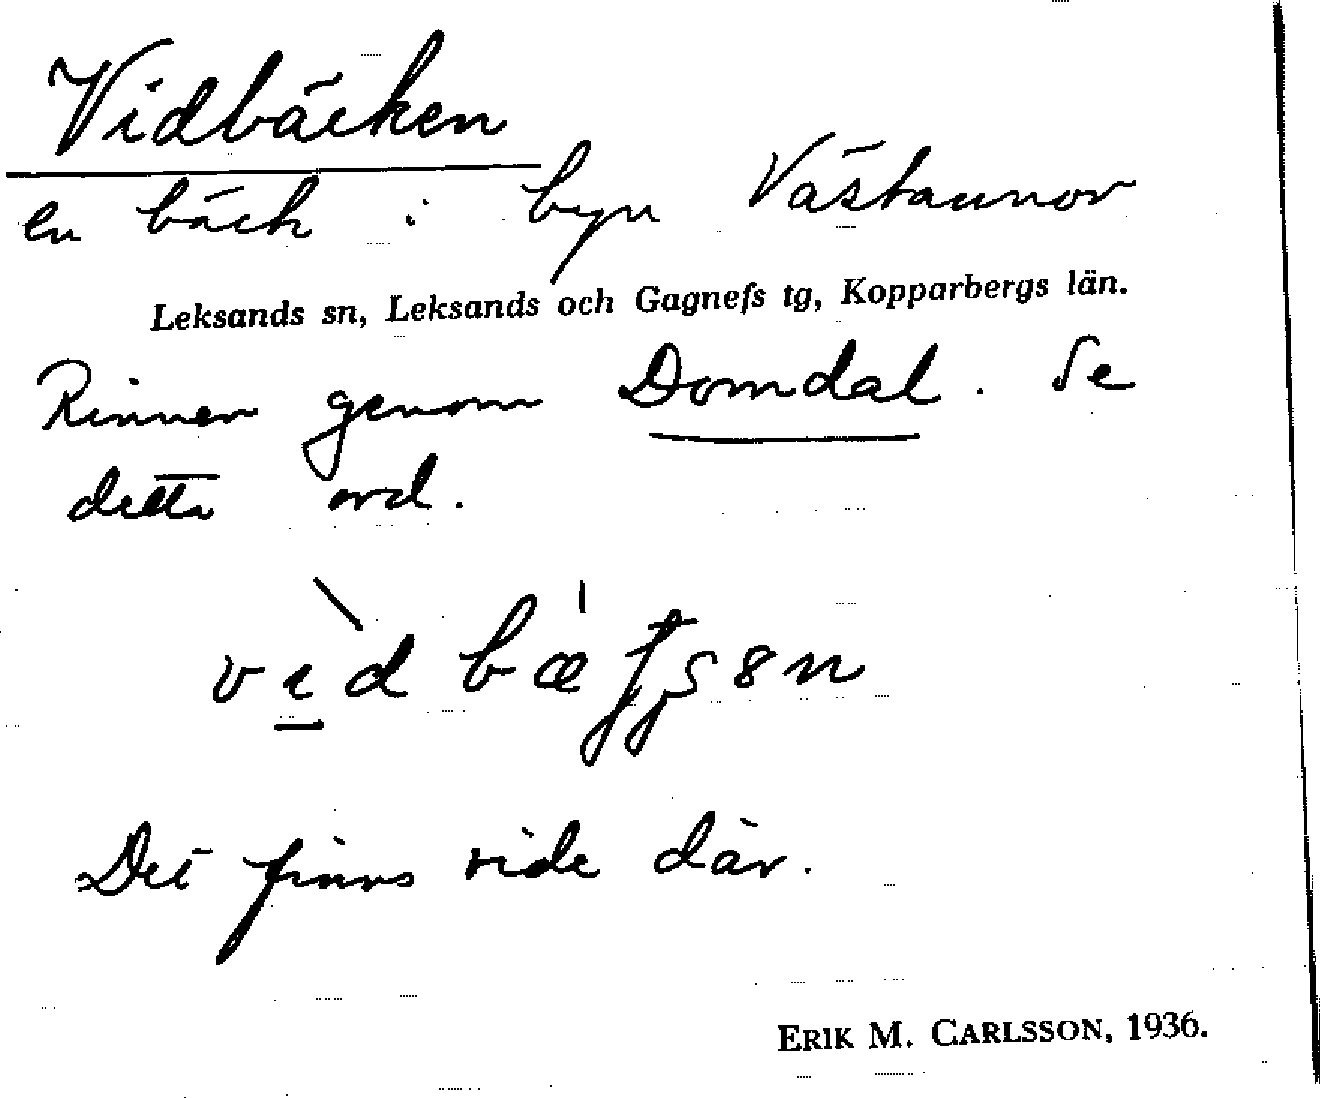 Vidbäcken
en bäck i byn Västannor
Leksands sn, Leksands och Gagnefs tg, Kopparbergs län.
Rinner genom Domdal. Se
detta ord.
Det finns vide där.
ERIK M. CARLSSON, 1936.